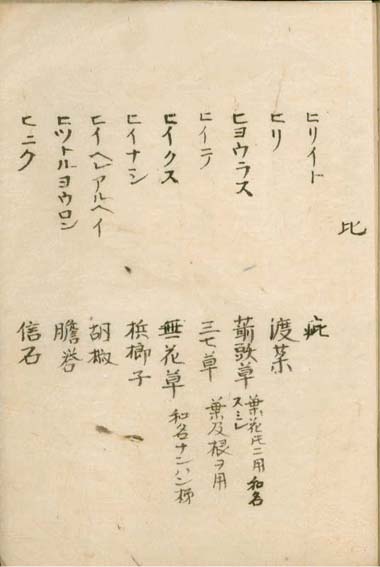 比
ヒリイト 疵
ヒリ 渡菜
ヒヨウラス 葉花氏ニ用 和名スミレ
ヒイテ 三七草 葉及根ヲ用
ヒイクス 無花草 和名ナンハン柹
ヒイナシ 梹榔子
ヒイヘレアルヘイ 胡椒
ヒツトルヨウロン 膽礬
ヒニク 信石